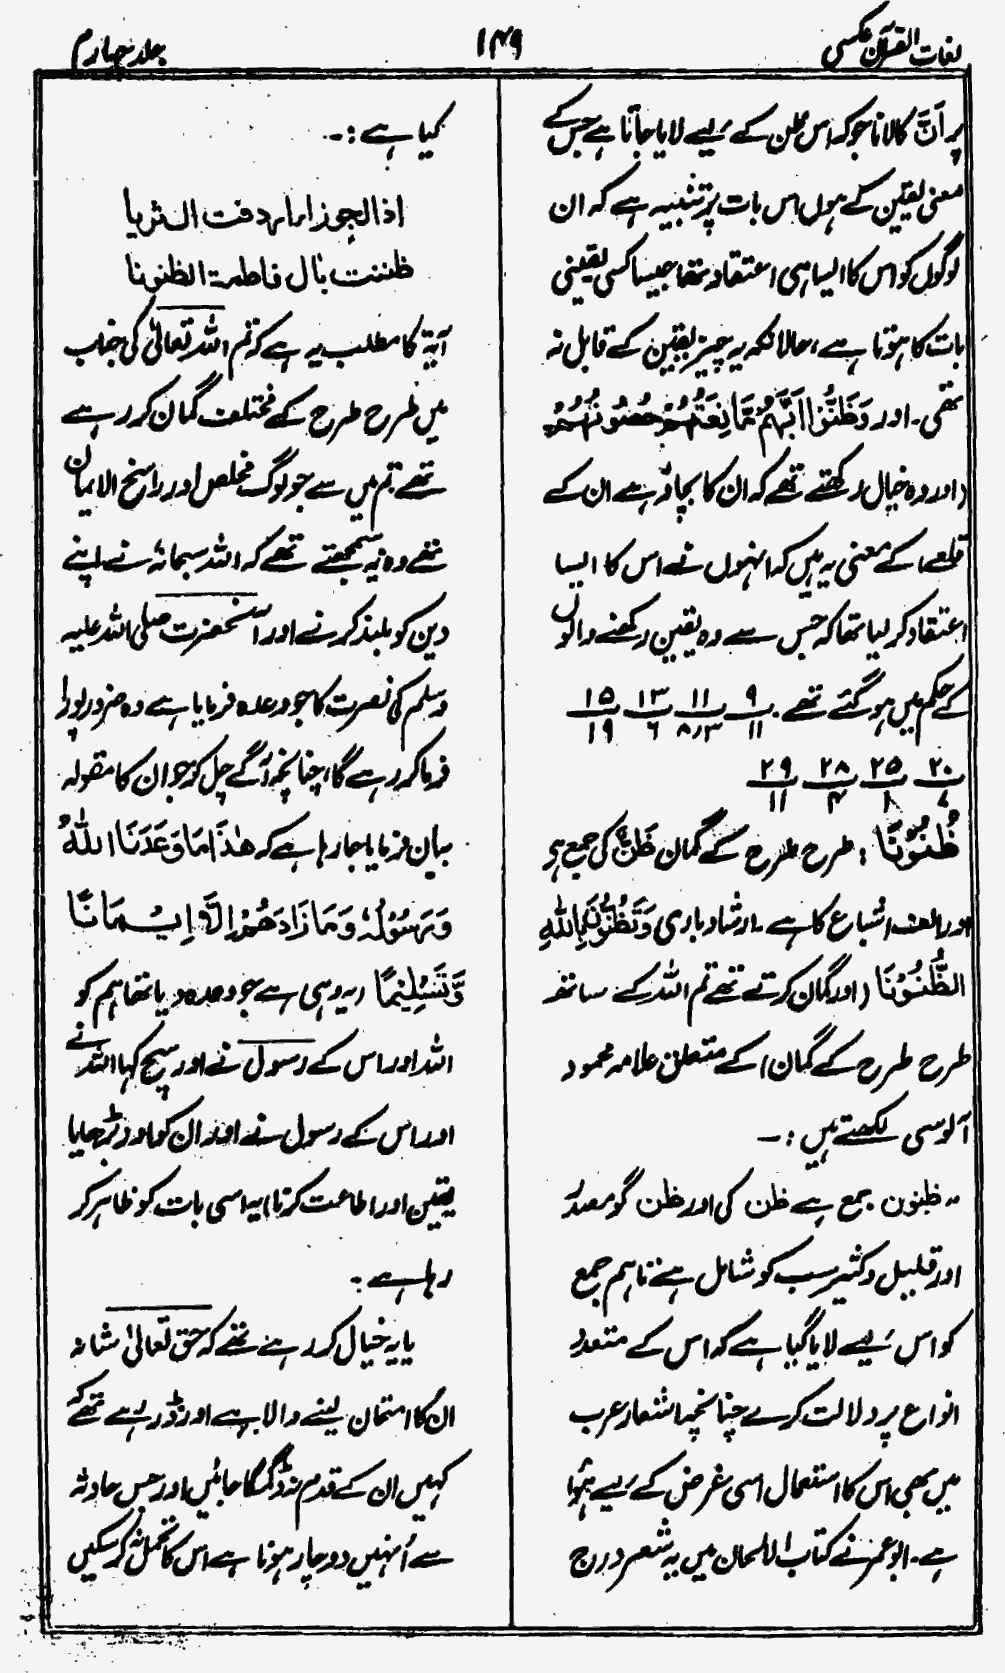 لغات القرآن عکسی
۱۴۹
جلد چہارم
پر أَنَّ کا لانا جو کہ اس ظن کے لیے لایا جاتا ہے جس کے
معنی یقین کے ہوں اس بات پر تنبیہ ہے کہ ان
لوگوں کو اس کا ایسا ہی اعتقاد تھا جیسا کسی یقینی
بات کا ہوتا ہے، حالانکہ یہ چیز یقین کے قابل نہ
تھی۔ اور وَظَنُّوْا اَنَّهُمْ مَّانِعَتُهُمْ حُصُوْنُهُمْ
(اور وہ خیال رکھتے تھے کہ ان کا بچاؤ ہے ان کے
قلعے) کے معنی یہ ہیں کہ انہوں نے اس کا ایسا
اعتقاد کر لیا تھا کہ جس سے وہ یقین رکھنے والوں
کے حکم میں ہو گئے تھے۔ ۹/۱۱ ۱۱/۸،۳ ۱۳/۶ ۱۵/۱۹
۲۰/۷ ۲۵/۱ ۲۸/۴ ۲۹/۱۱
ظُنُوْنًا : طرح طرح کے گمان ظَنٌّ کی جمع ہے
اور الف اشباع کا ہے۔ ارشاد باری وَتَظُنُّوْنَ بِاللّٰهِ
الظُّنُوْنَا (اور گمان کرتے تھے تم اللہ کے ساتھ
طرح طرح کے گمان) کے متعلق علامہ محمود
آلوسی لکھتے ہیں :۔
"ظنون جمع ہے ظن کی اور ظن گو مصدر
اور قلیل و کثیر سب کو شامل ہے تاہم جمع
کو اس لیے لایا گیا ہے کہ اس کے متعدد
انواع پر دلالت کرے چنانچہ اشعار عرب
میں بھی اس کا استعمال اسی غرض کے لیے ہوا
ہے۔ ابو عمر نے کتاب الالحان میں یہ شعر درج
کیا ہے :۔
اذا الجوزاء اردفت الثریا
ظننت بآل فاطمة الظنونا
آیۃ کا مطلب یہ ہے کہ تم اللہ تعالیٰ کی جناب
میں طرح طرح کے مختلف گمان کر رہے
تھے تم میں سے جو لوگ مخلص اور راسخ الایمان
تھے وہ یہ سمجھتے تھے کہ اللہ سبحانہ نے اپنے
دین کو بلند کرنے اور آنحضرت صلی اللہ علیہ
وسلم کی نصرت کا جو وعدہ فرمایا ہے وہ ضرور پورا
فرما کر رہے گا، چنانچہ آگے چل کر جو ان کا مقولہ
بیان فرمایا جا رہا ہے کہ هٰذَا مَا وَعَدَنَا اللّٰهُ
وَرَسُوْلُهٗ وَمَا زَادَهُمْ اِلَّآ اِيْمَانًا
وَّتَسْلِيْمًا (یہ وہی ہے جو وعدہ دیا تھا ہم کو
اللہ اور اس کے رسول نے اور سچ کہا اللہ نے
اور اس کے رسول نے اور ان کو اور بڑھ گیا
یقین اور اطاعت کرنا) یہ اسی بات کو ظاہر کر
رہا ہے :
یا یہ خیال کر رہے تھے کہ حق تعالیٰ شانہ
ان کا امتحان لینے والا ہے اور ڈر رہے تھے کہ
کہیں ان کے قدم نہ ڈگمگا جائیں اور جس حادثہ
سے اُنہیں دوچار ہونا ہے اس کا تحمل نہ کر سکیں